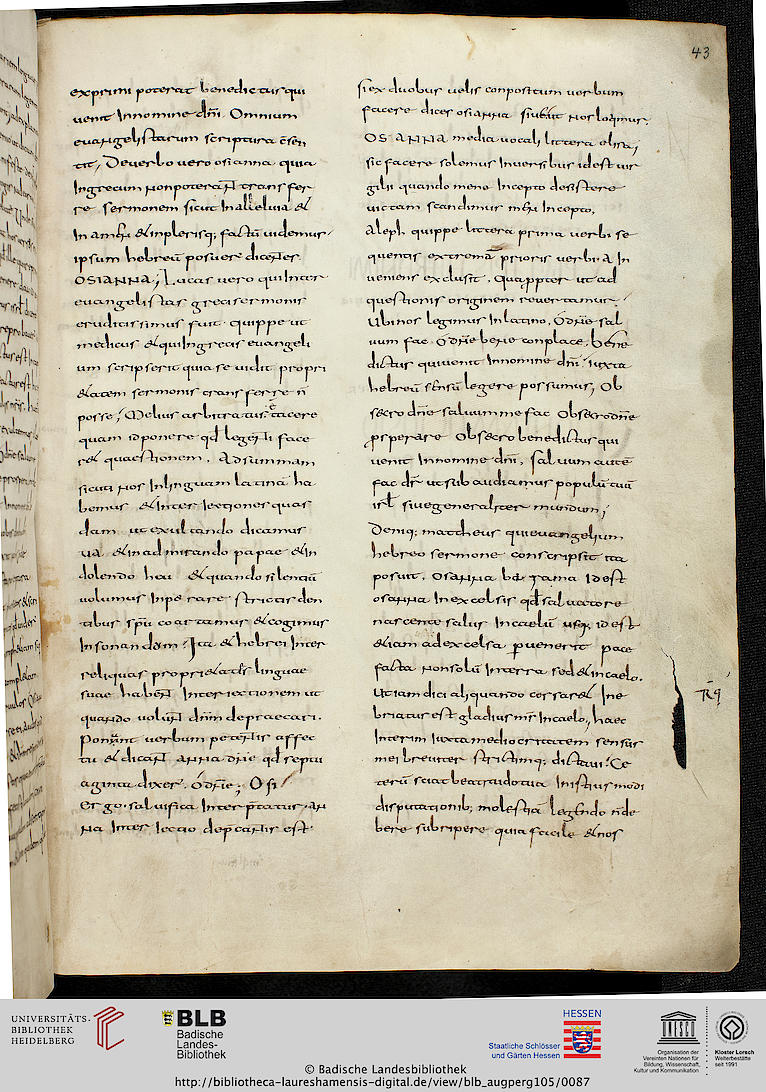 43
exprimi poterat benedictus qui
venit Innomine dñi. Omnium
evangelistarum scriptura c̄sen
tit, Deverbo vero osianna quia
Ingrecum nonpoterant transfer
re sermonem sicut Inalleluia &
In amen & inplerisq; factū uidemus.
ipsum hebreū posuere dicentes
OSIANNA; Lucas vero qui Inter
euangelistas greci sermonis
eruditissimus fuit. quippe ut
medicus & qui Ingrecis euangeli
um scripserit quia se vidit propri
&atem sermonis transferre ñ
posse; Melius arbitratus ÷ tacere
quam id ponere qđ legenti face
r& quaestionem. Adsummam
sicuti nos Inlinguam latinā ha
bemus & Inter iectiones quas
dam ut exultando dicamus
va & in admirando papae & in
dolendo heu. & quando silentiū
volumus Inperare strictis den
tibus spū coartamus & cogimus
Insonandum; Ita & hebrei Inter
reliquas propri&atis linguae
suae habent Inter iectionem ut
quando volunt dnm depraecari.
Ponunt verbum petentis affec
tu & dicant anna dñe qđ septu
aginta dixer. ó dñe; Osi
ergo. saluifica Interp̄tatur. an
na Inter iectio dep̄cantis est.
si ex duobus uelis conpositum verbum
facere dices osianna siue ut nos loqimur.
OSANNA media vocali littera elisa;
sic facere solemus Inversibus id est vir
gilii quando mene Incepto desistere
victam scandimus men Incepto,
Aleph quippe littera prima verbi se
quentis extremā prioris verbi A In
veniens exclusit. Quapp̄ter ut ad
questionis originem revertamur.
Ubi nos legimus In latino, Ó dñe sal
uum fac. ó dñe bene conplace, bene
dictus qui uenit Innomine dñi. iuxta
hebreū sensū legere possumus, Ob
secro dñe saluum me fac Obsecro dñe
ꝓsperare Obsecro benedictus qui
venit Innomine dñi, Saluum autē
fac dr̄ ut subaudiamus populū tuū
isrl̄ siue generaliter mundum;
Deniq; mattheus qui evangelium
hebreo sermone conscripsit ita
posuit. Osanna barrama Id est
osanna In excelsis qđ saluatore
nascente salus Incaelū usq; id est
&iam ad excelsa ꝑuenerit pace
facta non solū Interra sed & in caelo.
Ut iam dici aliquando cessar& Ine
briatus est gladius ms̄ Incaelo, haec
Interim Iuxta mediocritatem sensus
mei breviter strictimq; dictaui. Ce
terū sciat beatitudo tua In istius modi
disputationib; molestiā legendo ñ de
bere subripere quia facile & nos
UNIVERSITÄTS-
BIBLIOTHEK
HEIDELBERG
BLB
Badische
Landes-
Bibliothek
HESSEN
Staatliche Schlösser
und Gärten Hessen
UNESCO
Organisation der
Vereinten Nationen für
Bildung, Wissenschaft,
Kultur und Kommunikation
Kloster Lorsch
Welterbestätte
seit 1991
© Badische Landesbibliothek
http://bibliotheca-laureshamensis-digital.de/view/blb_augperg105/0087